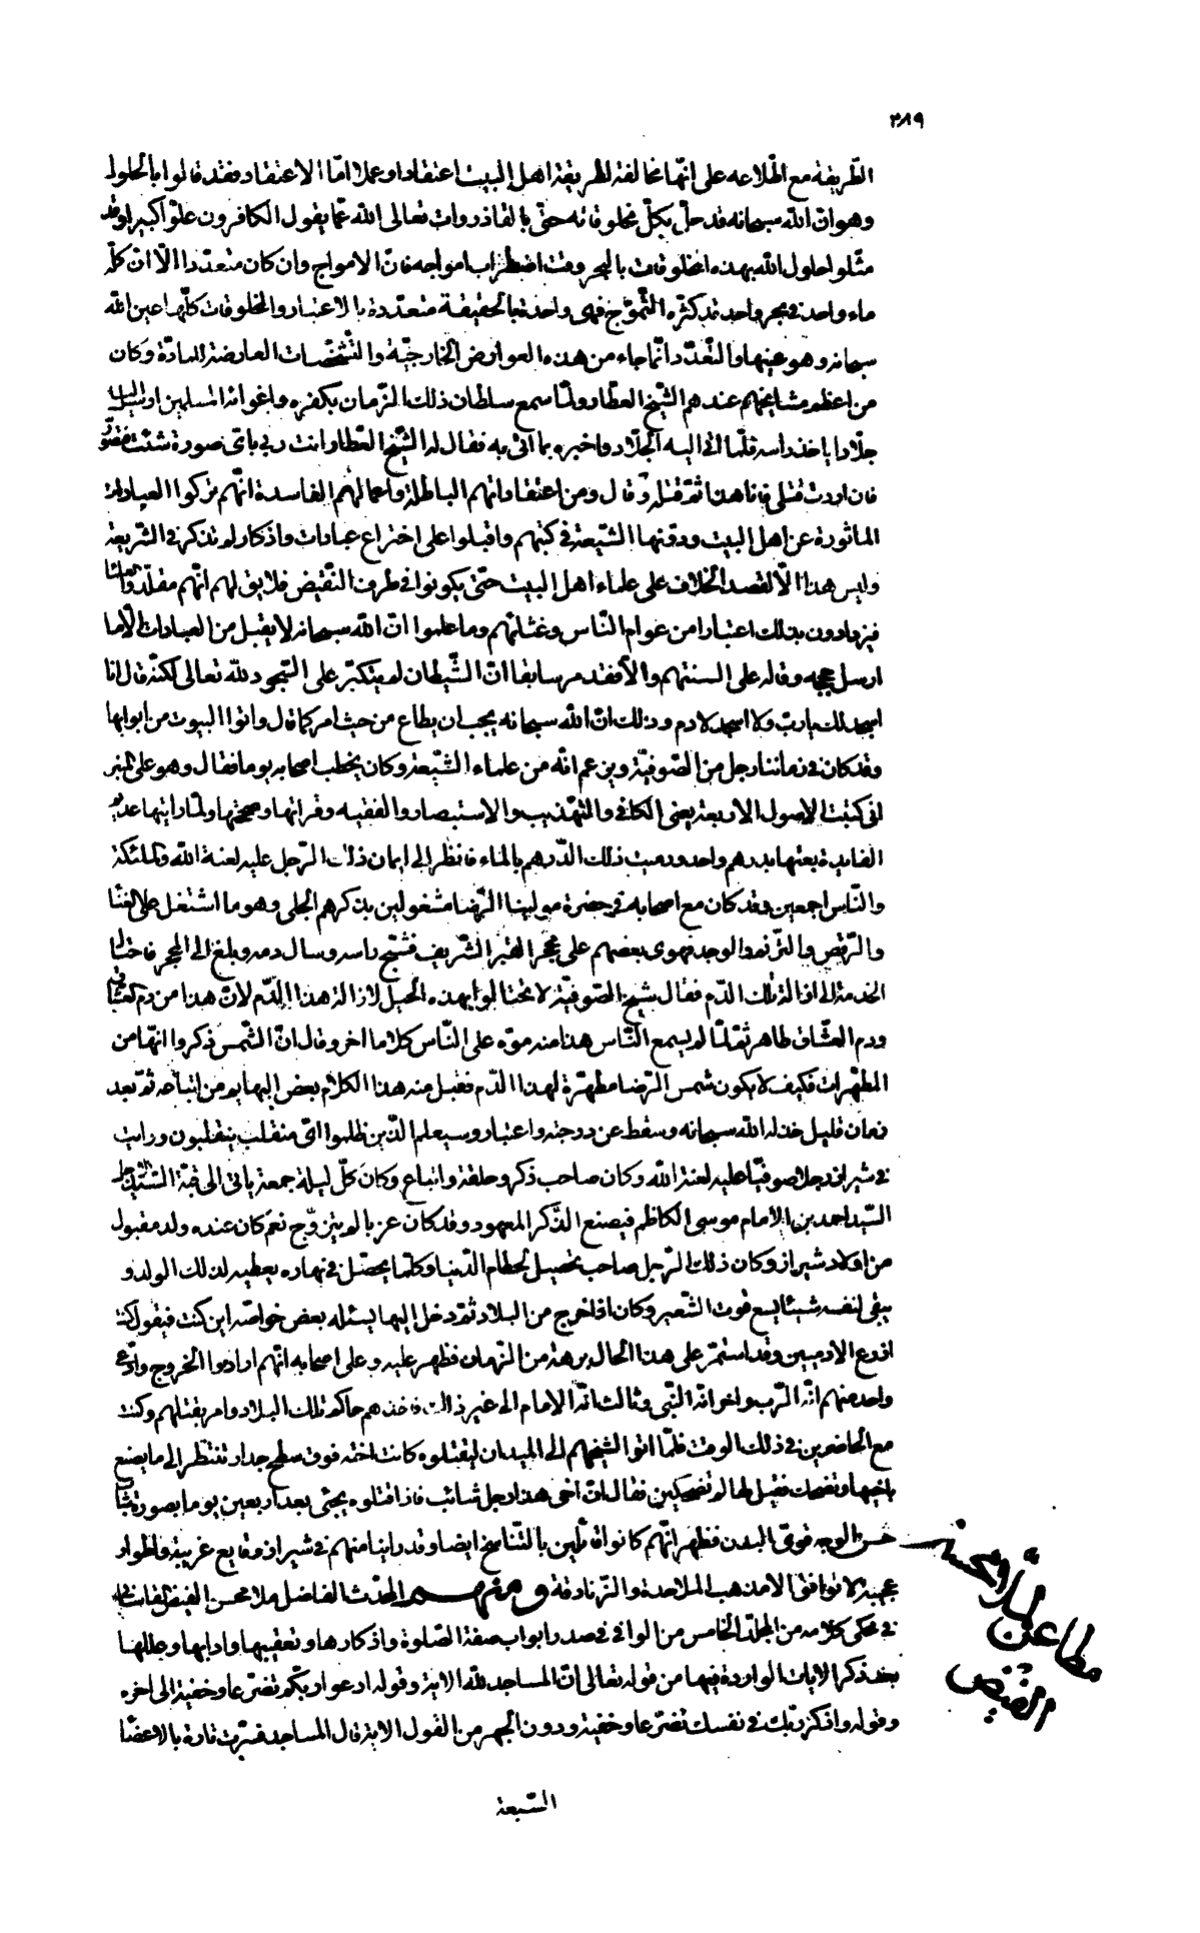 ٢٨٩
الطّريقة مع اطّلاعه على انّها مخالفة لطريقة اهل البيت اعتقادا وعملا امّا الاعتقاد فقد قالوا بالحلول
وهو انّ الله سبحانه قد حلّ بكلّ مخلوقاته حتّى بالقاذورات تعالى الله عمّا يقول الكافرون علوّا كبيرا وقد
مثّلوا حلول الله بهذه المخلوقات بالبحر وقت اضطراب امواجه فانّ الامواج وان كان متعدّدا الّا ان كلّه
ماء واحد في بحر واحد قد كثره التّموّج فهى واحدة بالحقيقة متعدّدة بالاعتبار والمخلوقات كلّها عين الله
سبحانه وهو عينها والتعدّد انّما جاء من هذه العوارض الخارجيّة والتّشخّصات العارضة للمادّة وكان
من اعظم مشايخهم عندهم الشّيخ العطّار ولمّا سمع سلطان ذلك الزّمان بكفره واغوائه المسلمين ارسل اليه
جلّادا ياخذ راسه فلمّا اتى اليه الجلّاد واخبره بما اتى به فقال له الشّيخ العطّار انت ربي باى صورة شئت فتصوّر
فان اردت قتلى فانا هذا ثمّ قتله وقال ومن اعتقاداتهم الباطلة واعمالهم الفاسدة انّهم تركوا العبادات
الماثورة عن اهل البيت ودقتها الشّيعة في كتبهم واقبلوا على اختراع عبادات واذكار لم تذكر في الشّريعة
وليس هذا الّا لقصد الخلاف على علماء اهل البيت حتّى يكونوا في طرف النّقيض فلا يق لهم انّهم مقلّدة علمائنا
فيزدادون بذلك اعتبارا من عوام النّاس وغثائهم وما علموا انّ الله سبحانه لا يقبل من العبادات الّا ما
ارسل حججه وقاله على السنتهم والّا فقد مر سابقا انّ الشّيطان لم يتكبّر على السّجود لله تعالى لكنّه قال انا
اسجد لك يا ربّ ولا اسجد لادم وذلك انّ الله سبحانه يحب ان يطاع من حيث امر كما قال واتوا البيوت من ابوابها
وقد كان في زماننا رجل من الصّوفيّة ويزعم انّه من علماء الشّيعة وكان يخطب اصحابه يوما فقال وهو على المنبر
انى كتبت الاصول الاربعة يعنى الكافى والتّهذيب والاستبصار والفقيه وقرأتها وصحّحتها ولمّا رايتها عديم
الفايدة بعتها بدرهم واحد ورميت ذلك الدّرهم بالماء فانظر الى ايمان ذلك الرّجل عليه لعنة الله والملئكة
والنّاس اجمعين وقد كان مع اصحابه في حضرة مولينا الرّضا مشغولين بذكرهم الجلى وهو ما اشتغل على الغنا
والرّقص والترّنم والوجد فهوى بعضهم على محجر القبر الشّريف فشجّ راسه وسال دمه وبلغ الى المحجر فاحتال
الخدمة الى ازالة ذلك الدّم فقال شيخ الصّوفيّة لا تحتالوا بهذه الحيل لازالة هذا الدّم لانّ هذا من دم العشّاق
ودم العشّاق طاهر ثمّ لمّا لم يسمع النّاس هذا منه موّه على النّاس كلاما اخر وقال انّ الشّمس ذكروا انّها من
المطهّرات فكيف لا يكون شمس الرّضا مطهّرة لهذا الدّم فقبل منه هذا الكلام بعض البهايم من اتباعه ثمّ بعد
زمان قليل خذله الله سبحانه وسقط عن درجته واعتباره وسيعلم الّذين ظلموا اىّ منقلب ينقلبون ورايت
في شيراز رجلا صوفيّا عليه لعنة الله وكان صاحب ذكر وحلقة واتباع وكان كلّ ليلة جمعة ياتى الى قبّة
السّيّد احمد بن الامام موسى الكاظم فيصنع الذّكر المعهود وقد كان عزبا لم يتزوّج نعم كان عنده ولد مقبول
من اولاد شيراز وكان ذلك الرّجل صاحب تحصيل لحطام الدّنيا وكلّما يحصّل في نهاره يعطيه لذلك الولد و
يبقى لنفسه شيئا يسع قوت الشّعير وكان اذا خرج من البلاد ثمّ دخل اليها يسئله بعض خواصّه اين كنت فيقول كنت
ازرع الادميين وقد استمرّ على هذا الحال برهة من الزّمان فظهر عليه وعلى اصحابه انّهم ارادوا الخروج وادّعى
واحد منهم انّه الرّب واخر انّه النّبى وثالث انّه الامام الى غير ذلك فاخذهم حاكم تلك البلاد وامر بقتلهم وكنت
مع الحاضرين في ذلك الوقت فلمّا اتوا بشيخهم الى الميدان ليقتلوه كانت اخته فوق سطح جدار تنتظر الى ما يصنع
باخيها وتضحك فقيل لها لم تضحكين فقال انّ اخى هذا رجل شائب فاذا قتلوه يجئى بعد اربعين يوما بصورة شابّ
حسن الوجه قوىّ البدن فظهر انّهم كانوا قائلين بالتّناسخ ايضا وقد راينا منهم في شيراز وقايع غريبة واطوار
عجيبة لا توافق الا مذهب الملاحدة والزّنادقة ومنهم المحدّث الفاضل ملا محسن الفيض القاشانى
في محكى كلامه من المجلّد الخامس من الوافى في صدر ابواب صفة الصّلوة واذكارها وتعقيبها وادابها وعللها
بعد ذكر الايات الواردة فيها من قوله تعالى انّ المساجد لله الاية وقوله ادعوا ربّكم تضرّعا وخفية الى اخره
وقوله واذكر ربّك في نفسك تضرّعا وخفية ودون الجهر من القول الاية قال المساجد فسّرت تارة بالاعضاء
السّبعة
مطاعن الملا محسن
الفيض